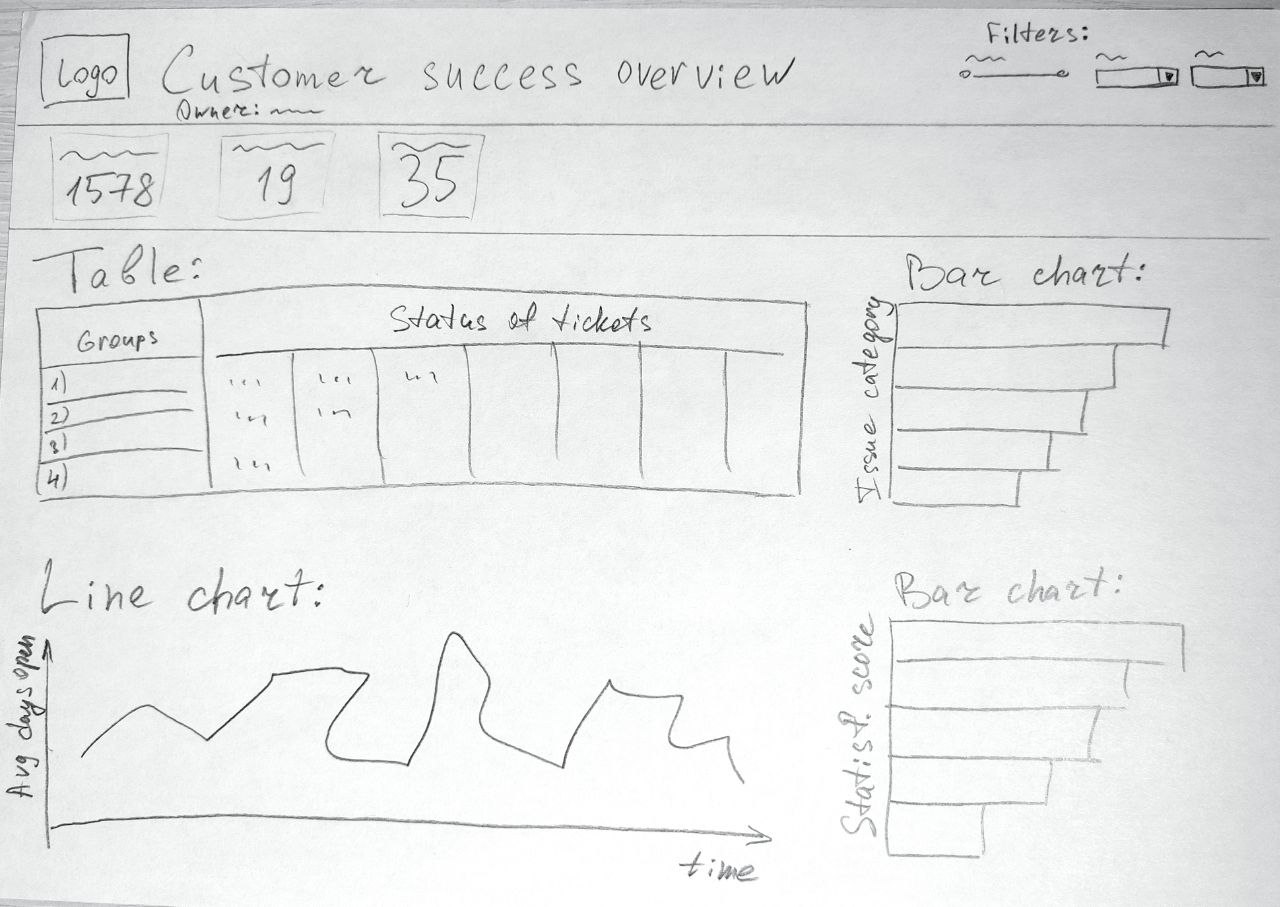 Logo
Customer success overview
Owner:
Filters:
1578
19
35
Table:
Groups
Status of tickets
1)
2)
3)
4)
Bar chart:
Issue category
Line chart:
Avg days open
time
Bar chart:
Statisf. score